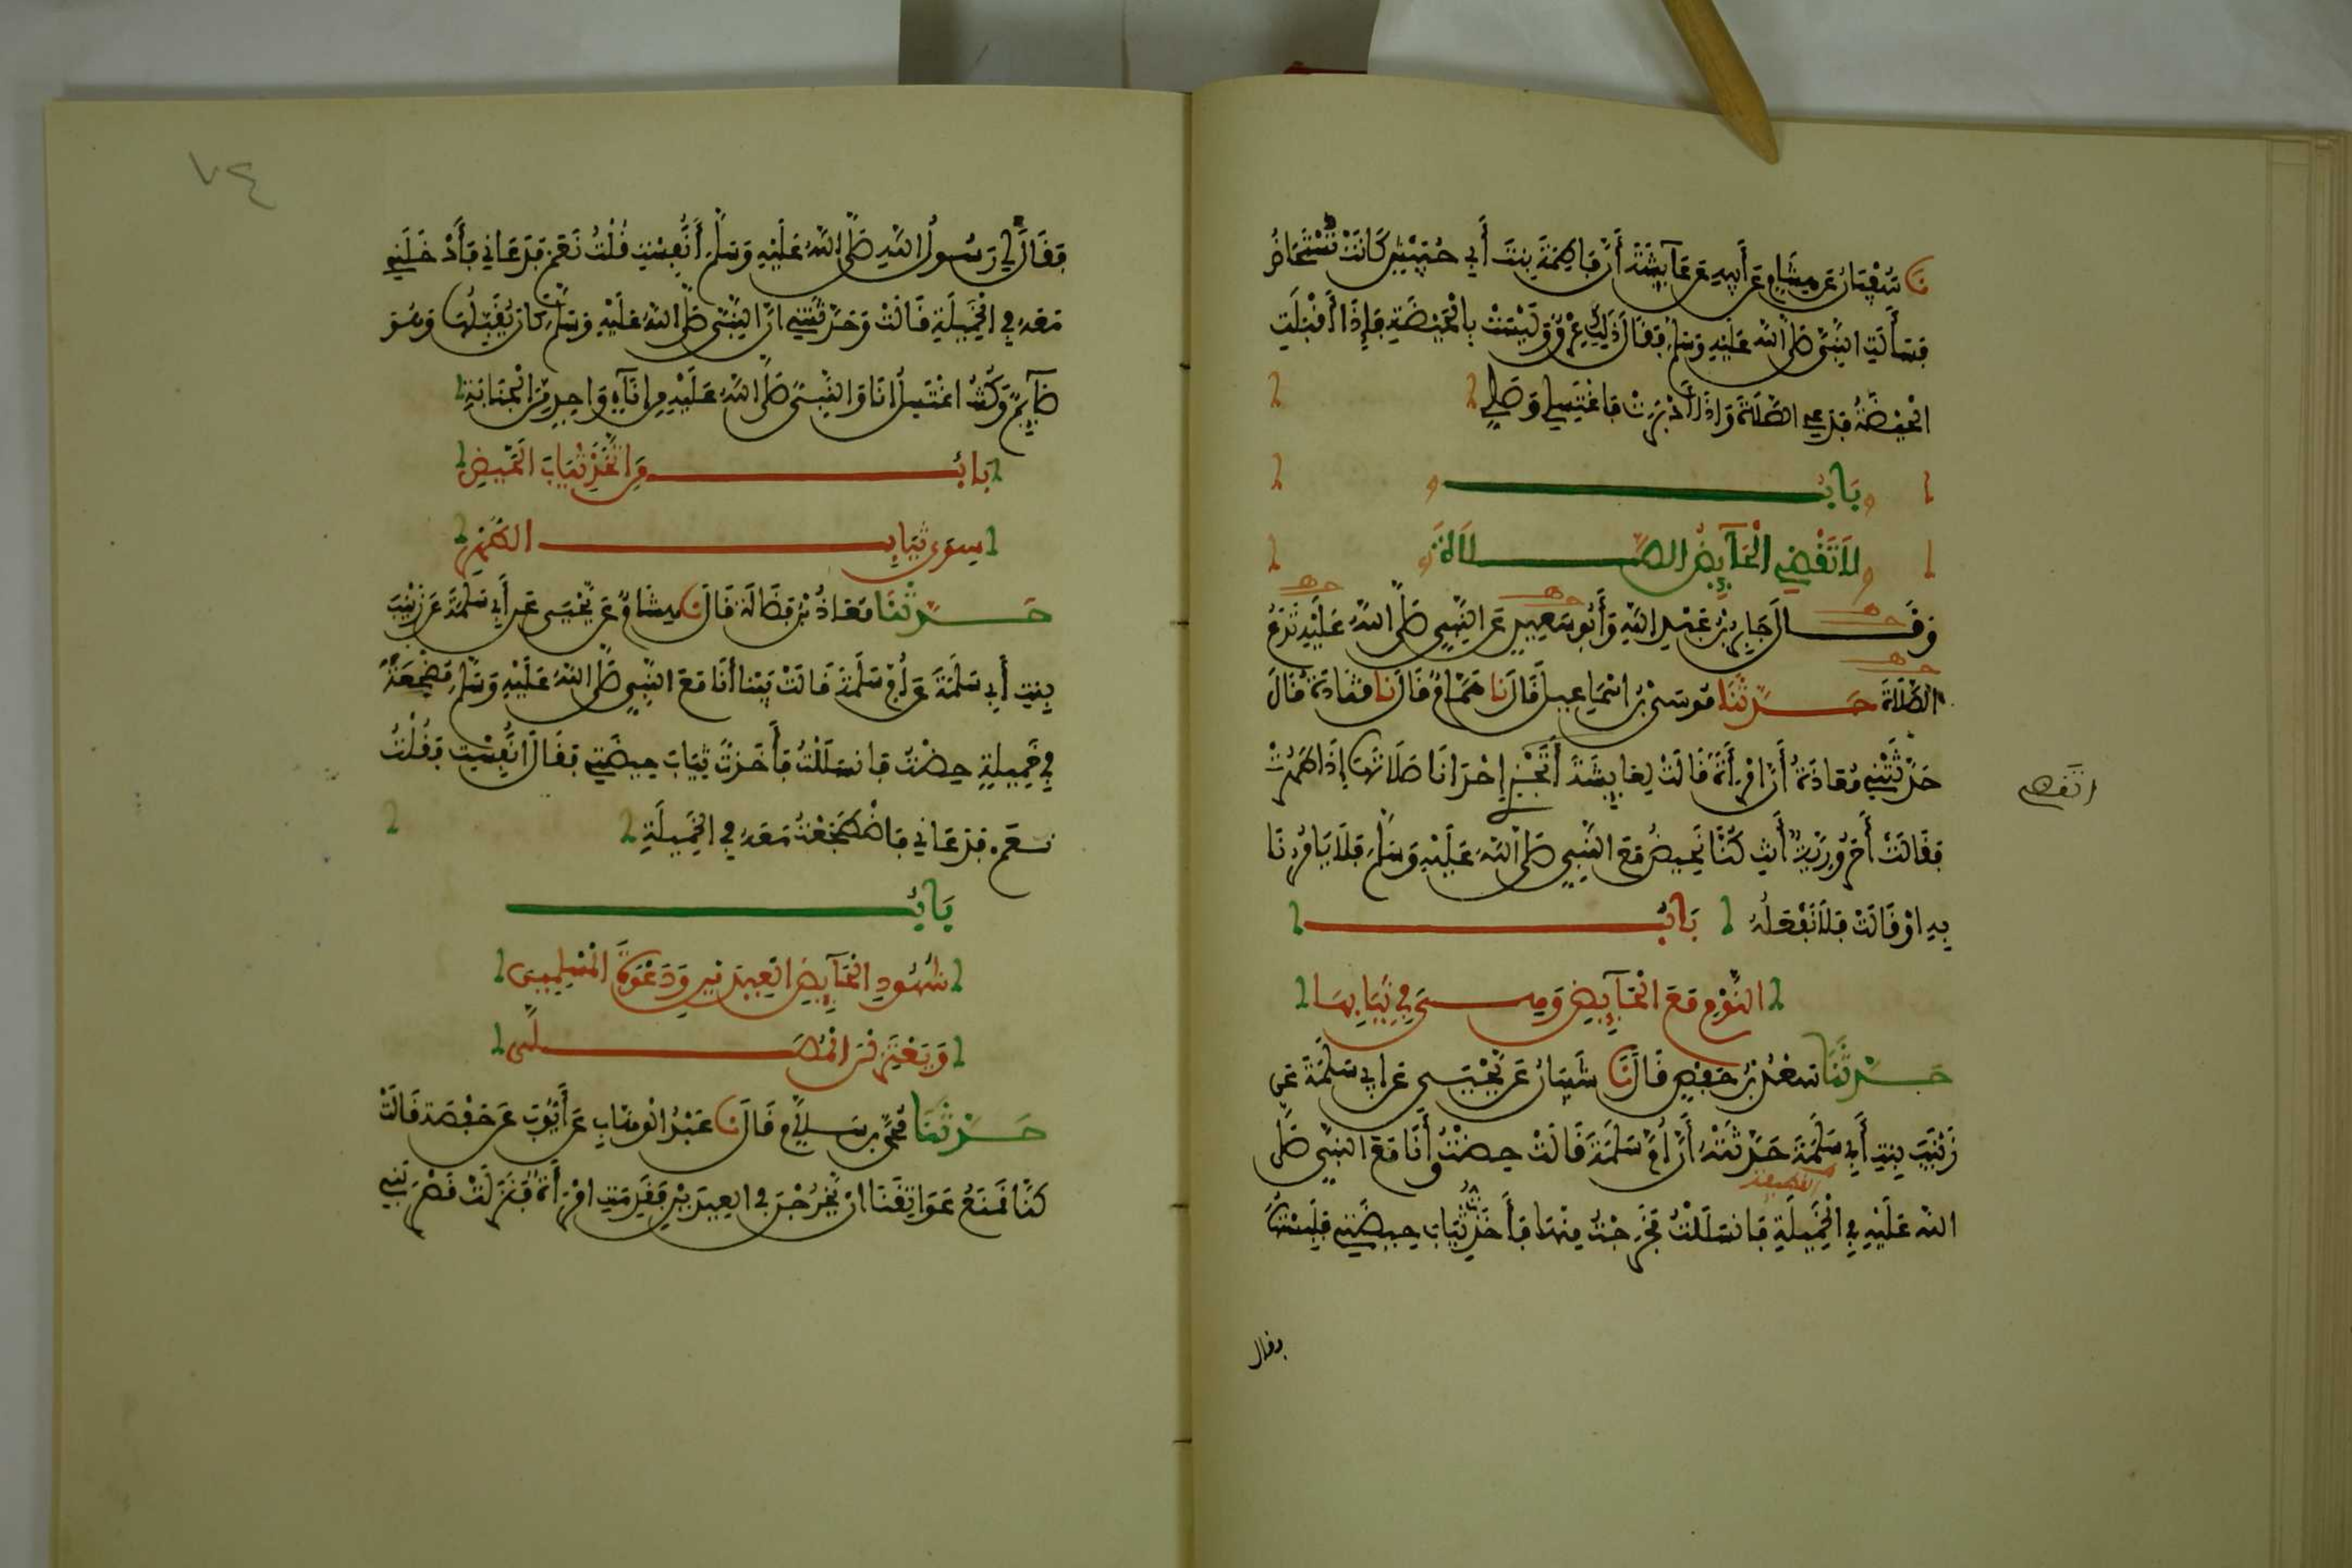 نَا سُفْيَانُ عَن هِشَامٍ عَن أَبِيهِ عَن عَآئِشَةَ أَنَّ فَاطِمَةَ بِنتَ أَبِي حُبَيْشٍ كَانَتْ تُسْتَحَاضُ
فَسَأَلَتِ النَّبِيَّ صَلَّى اللهُ عَلَيْهِ وَسَلَّمَ فَقَالَ ذَلِكِ عِرْقٌ وَلَيْسَتْ بِالْحَيْضَةِ فَإِذَا أَقْبَلَتِ
الْحَيْضَةُ فَدَعِي الصَّلَاةَ وَإِذَا أَدْبَرَتْ فَاغْتَسِلِي وَصَلِّي
بَابُ
لَا تَقْضِي الْحَآئِضُ الصَّلَاةَ
وَقَالَ جَابِرُ بْنُ عَبْدِ اللهِ وَأَبُو سَعِيدٍ عَنِ النَّبِيِّ صَلَّى اللهُ عَلَيْهِ تَدَعُ
الصَّلَاةَ حَدَّثَنَا مُوسَى بْنُ اسْمَاعِيلَ قَالَ نَا هَمَّامٌ قَالَ نَا قَتَادَةُ قَالَ
حَدَّثَتْنِي مُعَاذَةُ أَنَّ امْرَأَةً قَالَتْ لِعَائِشَةَ أَتَجْزِي إِحْدَانَا صَلَاتَهَا إِذَا طَهُرَتْ
فَقَالَتْ أَحَرُورِيَّةٌ أَنتِ كُنَّا نَحِيضُ مَعَ النَّبِيِّ صَلَّى اللهُ عَلَيْهِ وَسَلَّمَ فَلَا يَأْمُرُنَا
بِهِ اوْ قَالَتْ فَلَا نَفْعَلُهُ بَابُ
النَّوْمِ مَعَ الْحَآئِضِ وَهِيَ فِي ثِيَابِهَا
حَدَّثَنَا سَعْدُ بْنُ حَفْصٍ قَالَ نَا شَيْبَانُ عَن يَحْيَى عَن ابِي سَلَمَةَ عَن
زَيْنَبَ بِنتِ أَبِي سَلَمَةَ حَدَّثَتْهُ أَنَّ أُمَّ سَلَمَةَ قَالَتْ حِضْتُ وَأَنَا مَعَ النَّبِيِّ صَلَّى
اللهُ عَلَيْهِ فِي الْخَمِيلَةِ فَانسَلَلْتُ فَخَرَجْتُ مِنْهَا فَأَخَذْتُ ثِيَابَ حِيضَتِي فَلَبِسْتُهَا
فقال
٧٤
فَقَالَ لِي رَسُولُ اللهِ صَلَّى اللهُ عَلَيْهِ وَسَلَّمَ أَنُفِسْتِ قُلْتُ نَعَمْ فَدَعَانِي فَأَدْخَلَنِي
مَعَهُ فِي الْخَمِيلَةِ قَالَتْ وَحَدَّثَتْنِي انَّ النَّبِيَّ صَلَّى اللهُ عَلَيْهِ وَسَلَّمَ كَانَ يُقَبِّلُهَا وَهُوَ
صَآئِمٌ وَكُنتُ اغْتَسِلُ انَا وَالنَّبِيُّ صَلَّى اللهُ عَلَيْهِ مِن انَآءٍ وَاحِدٍ مِّنَ الْجَنَابَةِ
بَابُ مَنِ اتَّخَذَ ثِيَابَ الْحَيْضِ
سِوَى ثِيَابِ الطُّهْرِ
حَدَّثَنَا مُعَاذُ بْنُ فَضَالَةَ قَالَ نَا هِشَامٌ عَن يَحْيَى عَن أَبِي سَلَمَةَ عَن زَيْنَبَ
بِنتِ أَبِي سَلَمَةَ عَن أُمِّ سَلَمَةَ قَالَتْ بَيْنَا أَنَا مَعَ النَّبِيِّ صَلَّى اللهُ عَلَيْهِ وَسَلَّمَ مُضْطَجِعَةً
فِي خَمِيلَةٍ حِضْتُ فَانسَلَلْتُ فَأَخَذتُّ ثِيَابَ حِيضَتِي فَقَالَ أَنُفِسْتِ فَقُلْتُ
نَعَمْ فَدَعَانِي فَاضْطَجَعْتُ مَعَهُ فِي الْخَمِيلَةِ
بَابُ
شُهُودِ الْحَآئِضِ الْعِيدَيْنِ وَدَعْوَةَ الْمُسْلِمِينَ
وَيَعْتَزِلْنَ الْمُصَلَّى
حَدَّثَنَا مُحَمَّدُ بْنُ سَلَامٍ قَالَ نَا عَبْدُ الْوَهَّابِ عَن أَيُّوبَ عَن حَفْصَةَ قَالَتْ
كُنَّا نَمْنَعُ عَوَاتِقَنَا انْ يَخْرُجْنَ فِي الْعِيدَيْنِ فَقَدِمَتِ امْرَأَةٌ فَنَزَلَتْ قَصْرَ بَنِي